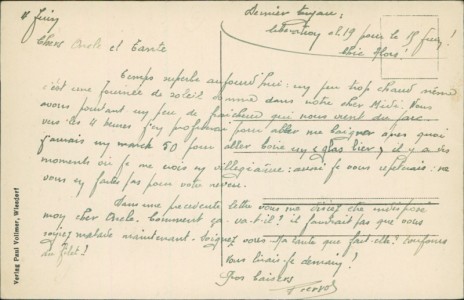 4 Juin
Dernier tuyau:
libération el 19 pour le 15 Juin!
Chers Oncle et Tante
Temps superbe aujourd'hui: un peu trop chaud même
c'est une journée de soleil comme dans notre cher Midi. Nous
avons pourtant un peu de fraîcheur qui nous vient du parc.
vers les 4 heures j'en profiterai pour aller me baigner après quoi
mark 50 pour aller boire un "glas bier", il y a des
moments où je me crois en villégiature: aussi je vous répétais: ne
vous en faites pas pour votre neveu.
Dans une précédente lettre vous me disiez être indisposé
mon cher Oncle. Comment ça va-t-il? il faudrait pas que vous
soyiez malade maintenant. Soignez vous. Ma tante que fait-elle? toujours
du filet?
Vous lirais-je demain?
Gros baisers
Verlag Paul Vollmer, Wiesdorf